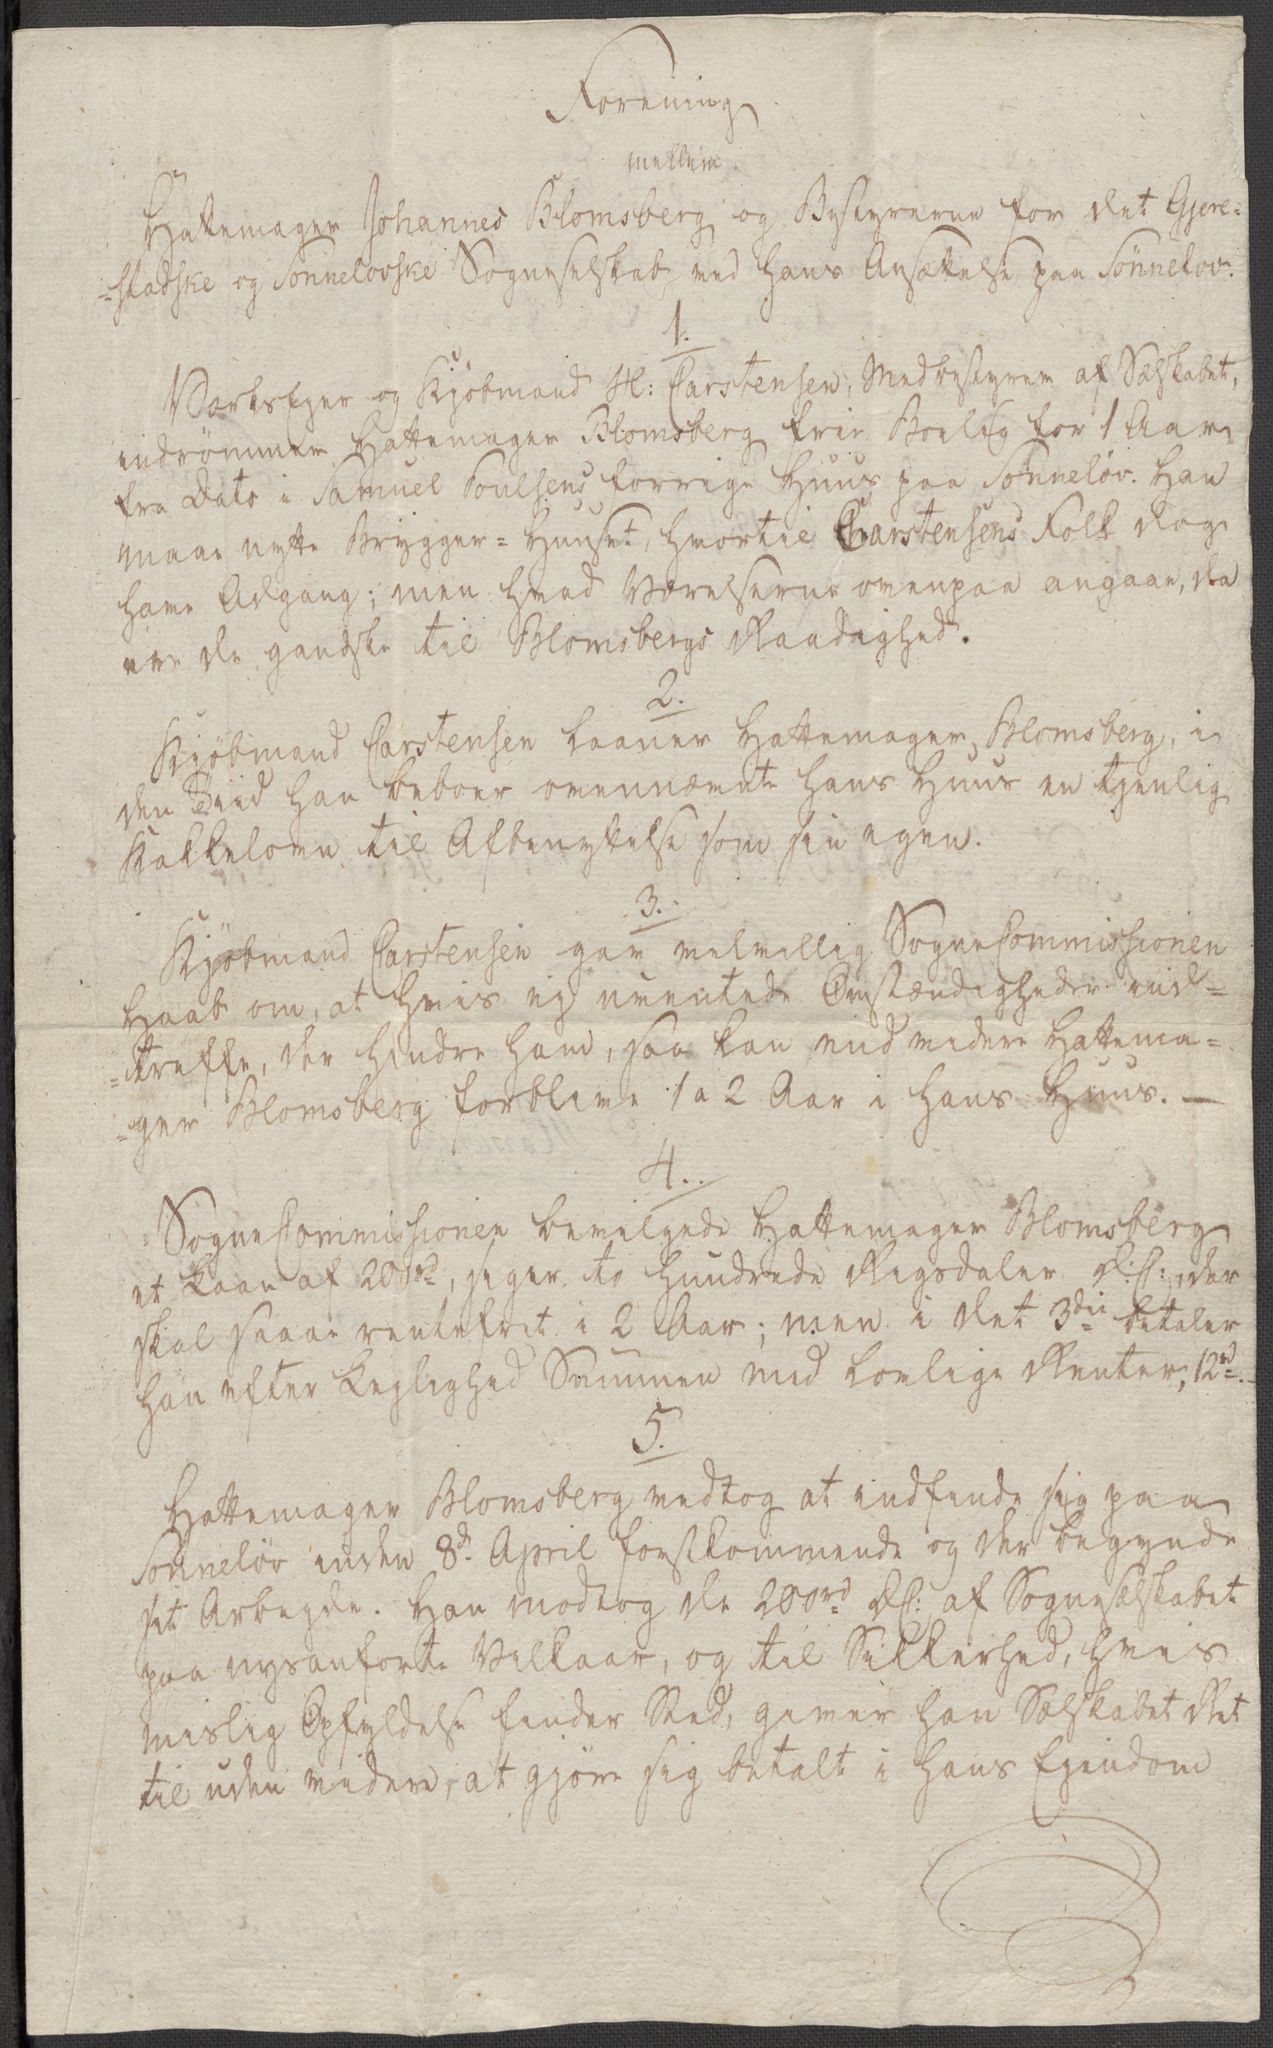 Forening
mellem
Hattemager Johannes Blomsberg og Bestyrerne for det Gjere-
-stadske og Sønnelovske Sogneselskab ved hans Ansættelse paa Sønneløv.
1.
Værkseyer og Kjøbmand H: Carstensen, Medbestyrer af Selskabet,
indrømmer Hattemager Blomsberg frie Bolig for 1 Aar
fra Dato i Samuel Poulsens forrige Huus paa Sønneløv. Han
maae nytte Brygger-Huuset, hvortil Carstensens Folk dog
have Adgang; men hvad Værelserne ovenpaa angaae, da
ere de gandske til Blomsbergs Raadighed.
2.
Kjøbmand Carstensen laaner Hattemager Blomsberg, i
den Tiid han beboer ovennævnte hans Huus en tjenlig
Kakkelovn til Afbenyttelse som sin egen.
3.
Kjøbmand Carstensen gav velvillig SogneCommissionen
Haab om, at hvis ej uventede Omstændigheder ind-
-træffe, der hindre ham, saa kan end videre Hattema-
-ger Blomsberg forblive 1 a 2 Aar i hans Huus. —
4.
SogneCommissionen bevilgede Hattemager Blomsberg
et Laan af 200rd, siger to hundrede Rigsdaler D:C:, der
skal staae rentefrit i 2 Aar; men i det 3die betaler
han efter Leylighed Summen med lovlige Renter, 12rd.
5.
Hattemager Blomsberg vedtog at indfinde sig paa
Sønneløv inden 8d. April førstkommende og der begynde
sit Arbeyde. Han modtog de 200rd DC: af Sogneselskabet
paa nysanførte Vilkaar, og til Sikkerhed, hvis
mislig Opfyldelse finder Sted, giver han Selskabet Ret
til uden videre, at gjøre sig betalt i hans Ejendom